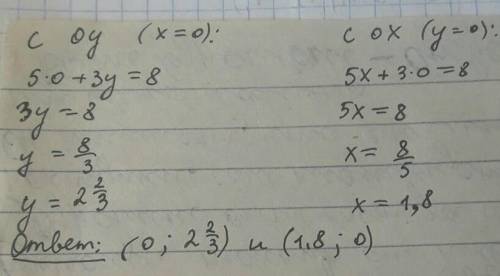 с оу (x=0):
5·0+3y=8
3y=8
y = 8/3
y = 2 2/3
с ох (y=0):
5x+3·0=8
5x=8
x= 8/5
x=1,8
Ответ: (0; 2 2/3) и (1,8; 0)